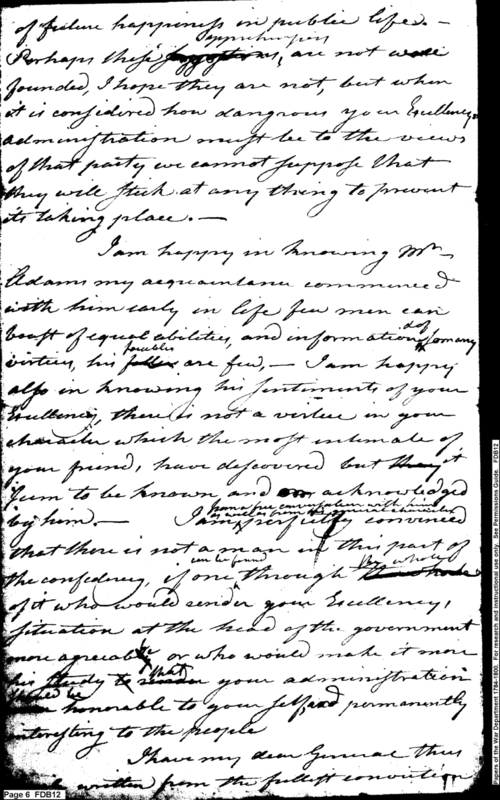 of future happiness in public life. —
apprehensions
Perhaps these are not well
founded, I hope they are not, but when
it is considered how dangrous your Excellency
administration must be to the views
of that party we cannot suppose that
they will stick at any thing to prevent
its taking place. —
I am happy in knowing Mr
Adams my acquaintance commenced
with him early in life few men can
boast of equal abilities, and information & of so many
virtues, his foibles are few, — I am happy
also in knowing his sentiments of your
Excellency, there is not a virtue in your
character which the most intimate of
your friends have discovered but it
seem to be known and acknowledged
by him. — I am perfectly convinced
from free conversation with him
that there is not a man in this part of
the confederacy, if one can be found through the whole
of it who would render your Excellency's
situation at the head of the government
more agreeable or who would make it more
his study that your administration
should be honorable to your self, and permanently
interesting to the people
I have my dear General thus
written from the fullest conviction
Page 6 FDB12
Papers of the War Department 1784-1800. For research and instructional use only. See Permissions Guide. FDB12